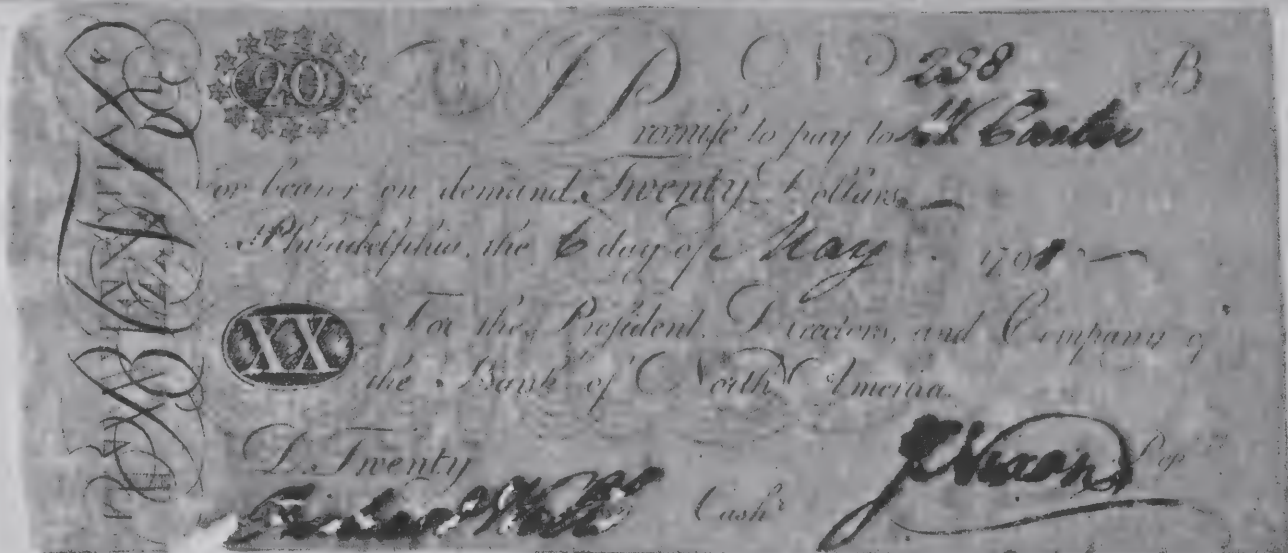 20 Nº 238 B
Promise to pay to
or bearer on demand Twenty Dollars
Philadelphia, the 6 day of May 179
XX For the President, Directors, and Company of
the Bank of North America.
D. Twenty
Cashr J Nixon Pres